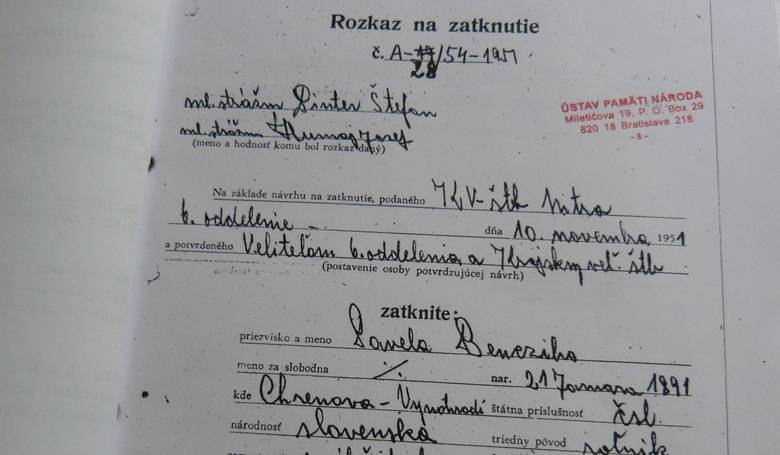 Rozkaz na zatknutie
č. A-28/54-1951
ml. strážm Dinter Štefan
ml. strážm Jozef
(meno a hodnosť komu bol rozkaz daný)
ÚSTAV PAMÄTI NÁRODA
Miletičova 19, P. O. Box 29
820 18 Bratislava 218
- 8 -
Na základe návrhu na zatknutie, podaného KV-štb Nitra
6. oddelenie - dňa 10. novembra 1951
a potvrdeného Veliteľom 6. oddelenia a Krajským vel. štb
(postavenie osoby potvrdzujúcej návrh)
zatknite:
priezvisko a meno Pavela Benciho
meno za slobodna /. nar. 21 Januara 1891
kde Chrenova - Vynohradí štátna príslušnosť čsl.
národnosť slovenská triedny pôvod roľník